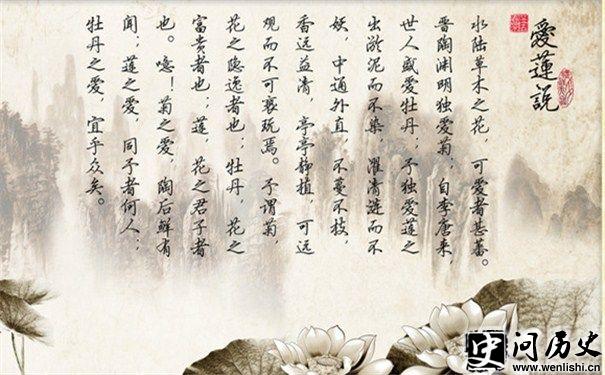 愛蓮說
水陆草木之花，可爱者甚蕃。
晋陶渊明独爱菊；自李唐来，
世人盛爱牡丹；予独爱莲之
出淤泥而不染 濯清涟而不
妖，中通外直，不蔓不枝，
香远益清，亭亭静植，可远
观而不可亵玩焉。予谓菊，
花之隐逸者也；牡丹，花之
富贵者也；莲，花之君子者
也。噫！菊之爱，陶后鲜有
闻；莲之爱，同予者何人；
牡丹之爱，宜乎众矣。
史问历史
www.wenlishi.cn